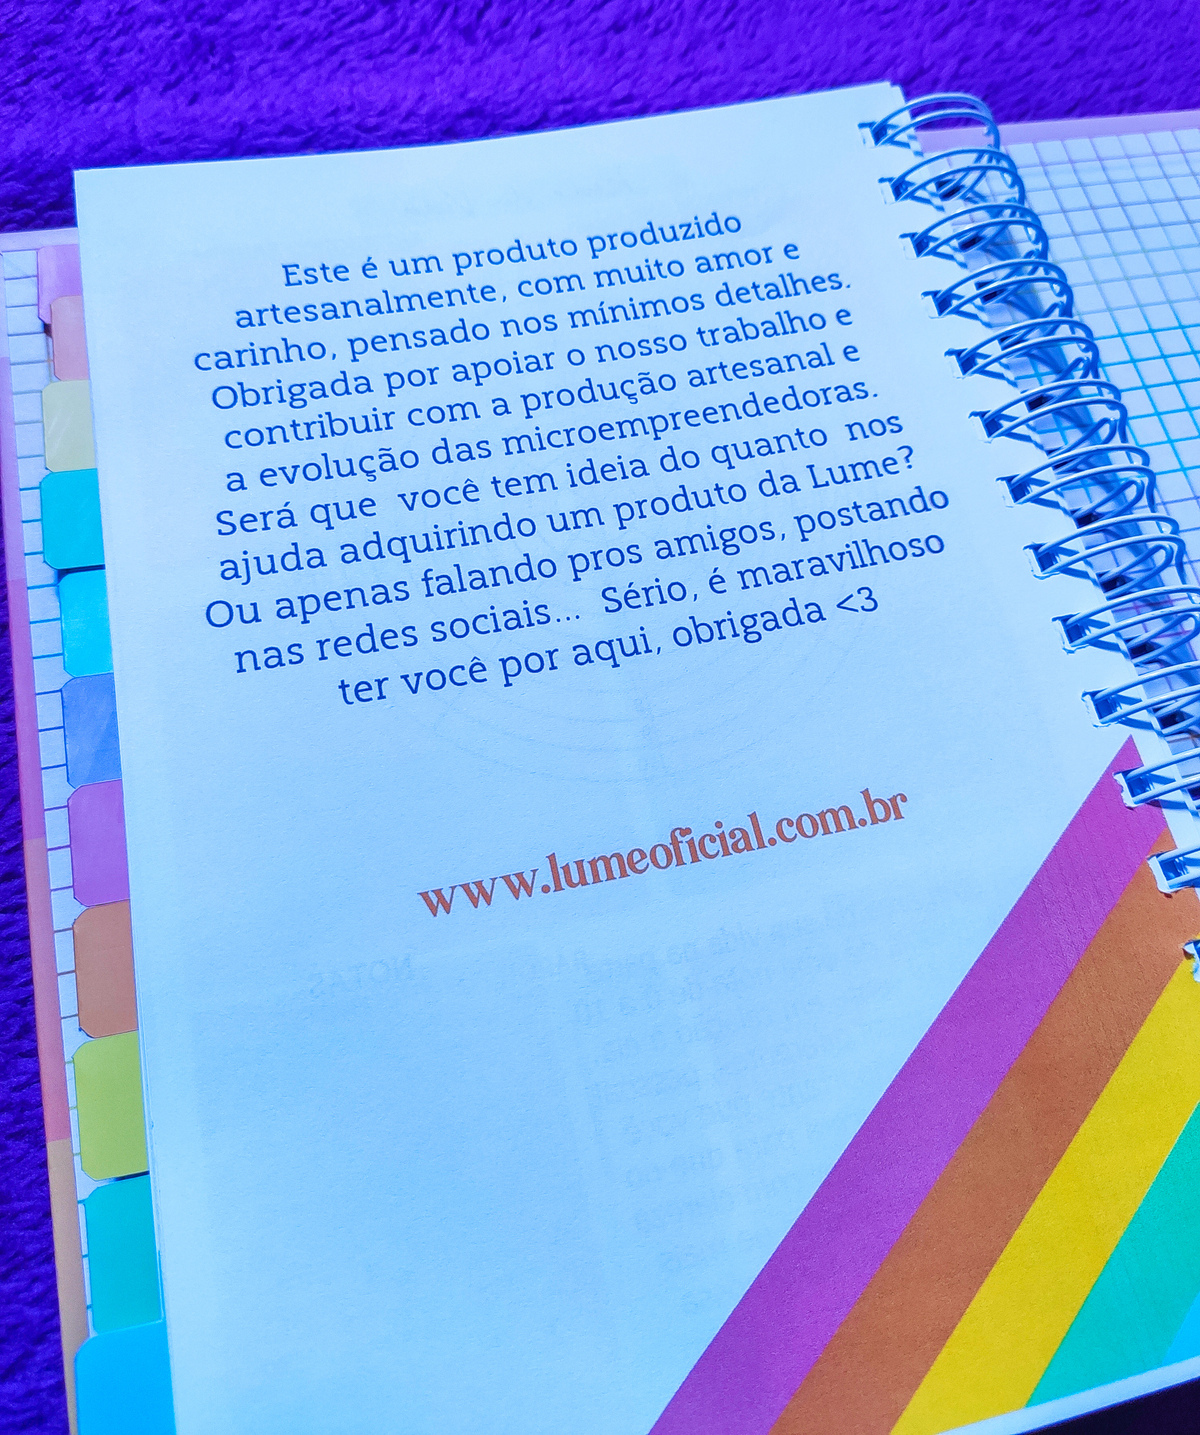 Este é um produto produzido
artesanalmente, com muito amor e
carinho, pensado nos mínimos detalhes.
Obrigada por apoiar o nosso trabalho e
contribuir com a produção artesanal e
a evolução das microempreendedoras.
Será que você tem ideia do quanto nos
ajuda adquirindo um produto da Lume?
Ou apenas falando pros amigos, postando
nas redes sociais... Sério, é maravilhoso
ter você por aqui, obrigada <3
www.lumeoficial.com.br
NOTAS